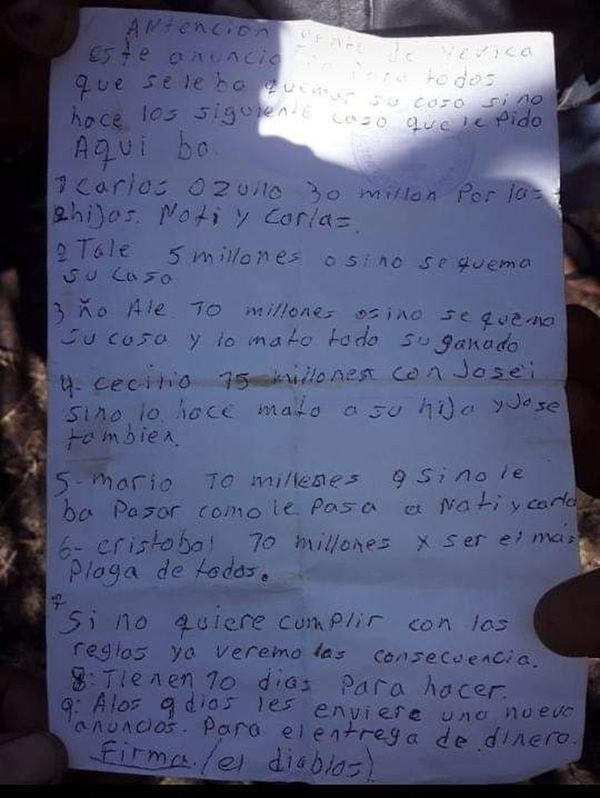 ANtencion gente de yevica
este anuncio para todos
que se le ba quemar su casa si no
hace los siguiente caso que le Pido
AQui ba.
1 Carlos Ozuño 30 millon Por las
2 hijas. Nati y Carlas.
2 Tale 5 millones o sino se quema
su casa
3 ño Ale 10 millones osino se quema
su casa y lo mato todo su ganado
4- cecilio 15 millones con Jose i
sino lo hace mato a su hija y Jose
tambien.
5- mario 10 millenes o sino le
ba Pasar como le Pasa a Nati y carla
6- cristobal 10 millones x ser el más
Plaga de todos.
7
Si no quiere cumplir con las
reglas ya veremo las consecuencia.
8: Tienen 10 dias Para hacer.
9: Alos 9 dias les enviere uno nuevo
anuncios. Para el entrega de dinero.
Firma. (el diablos)